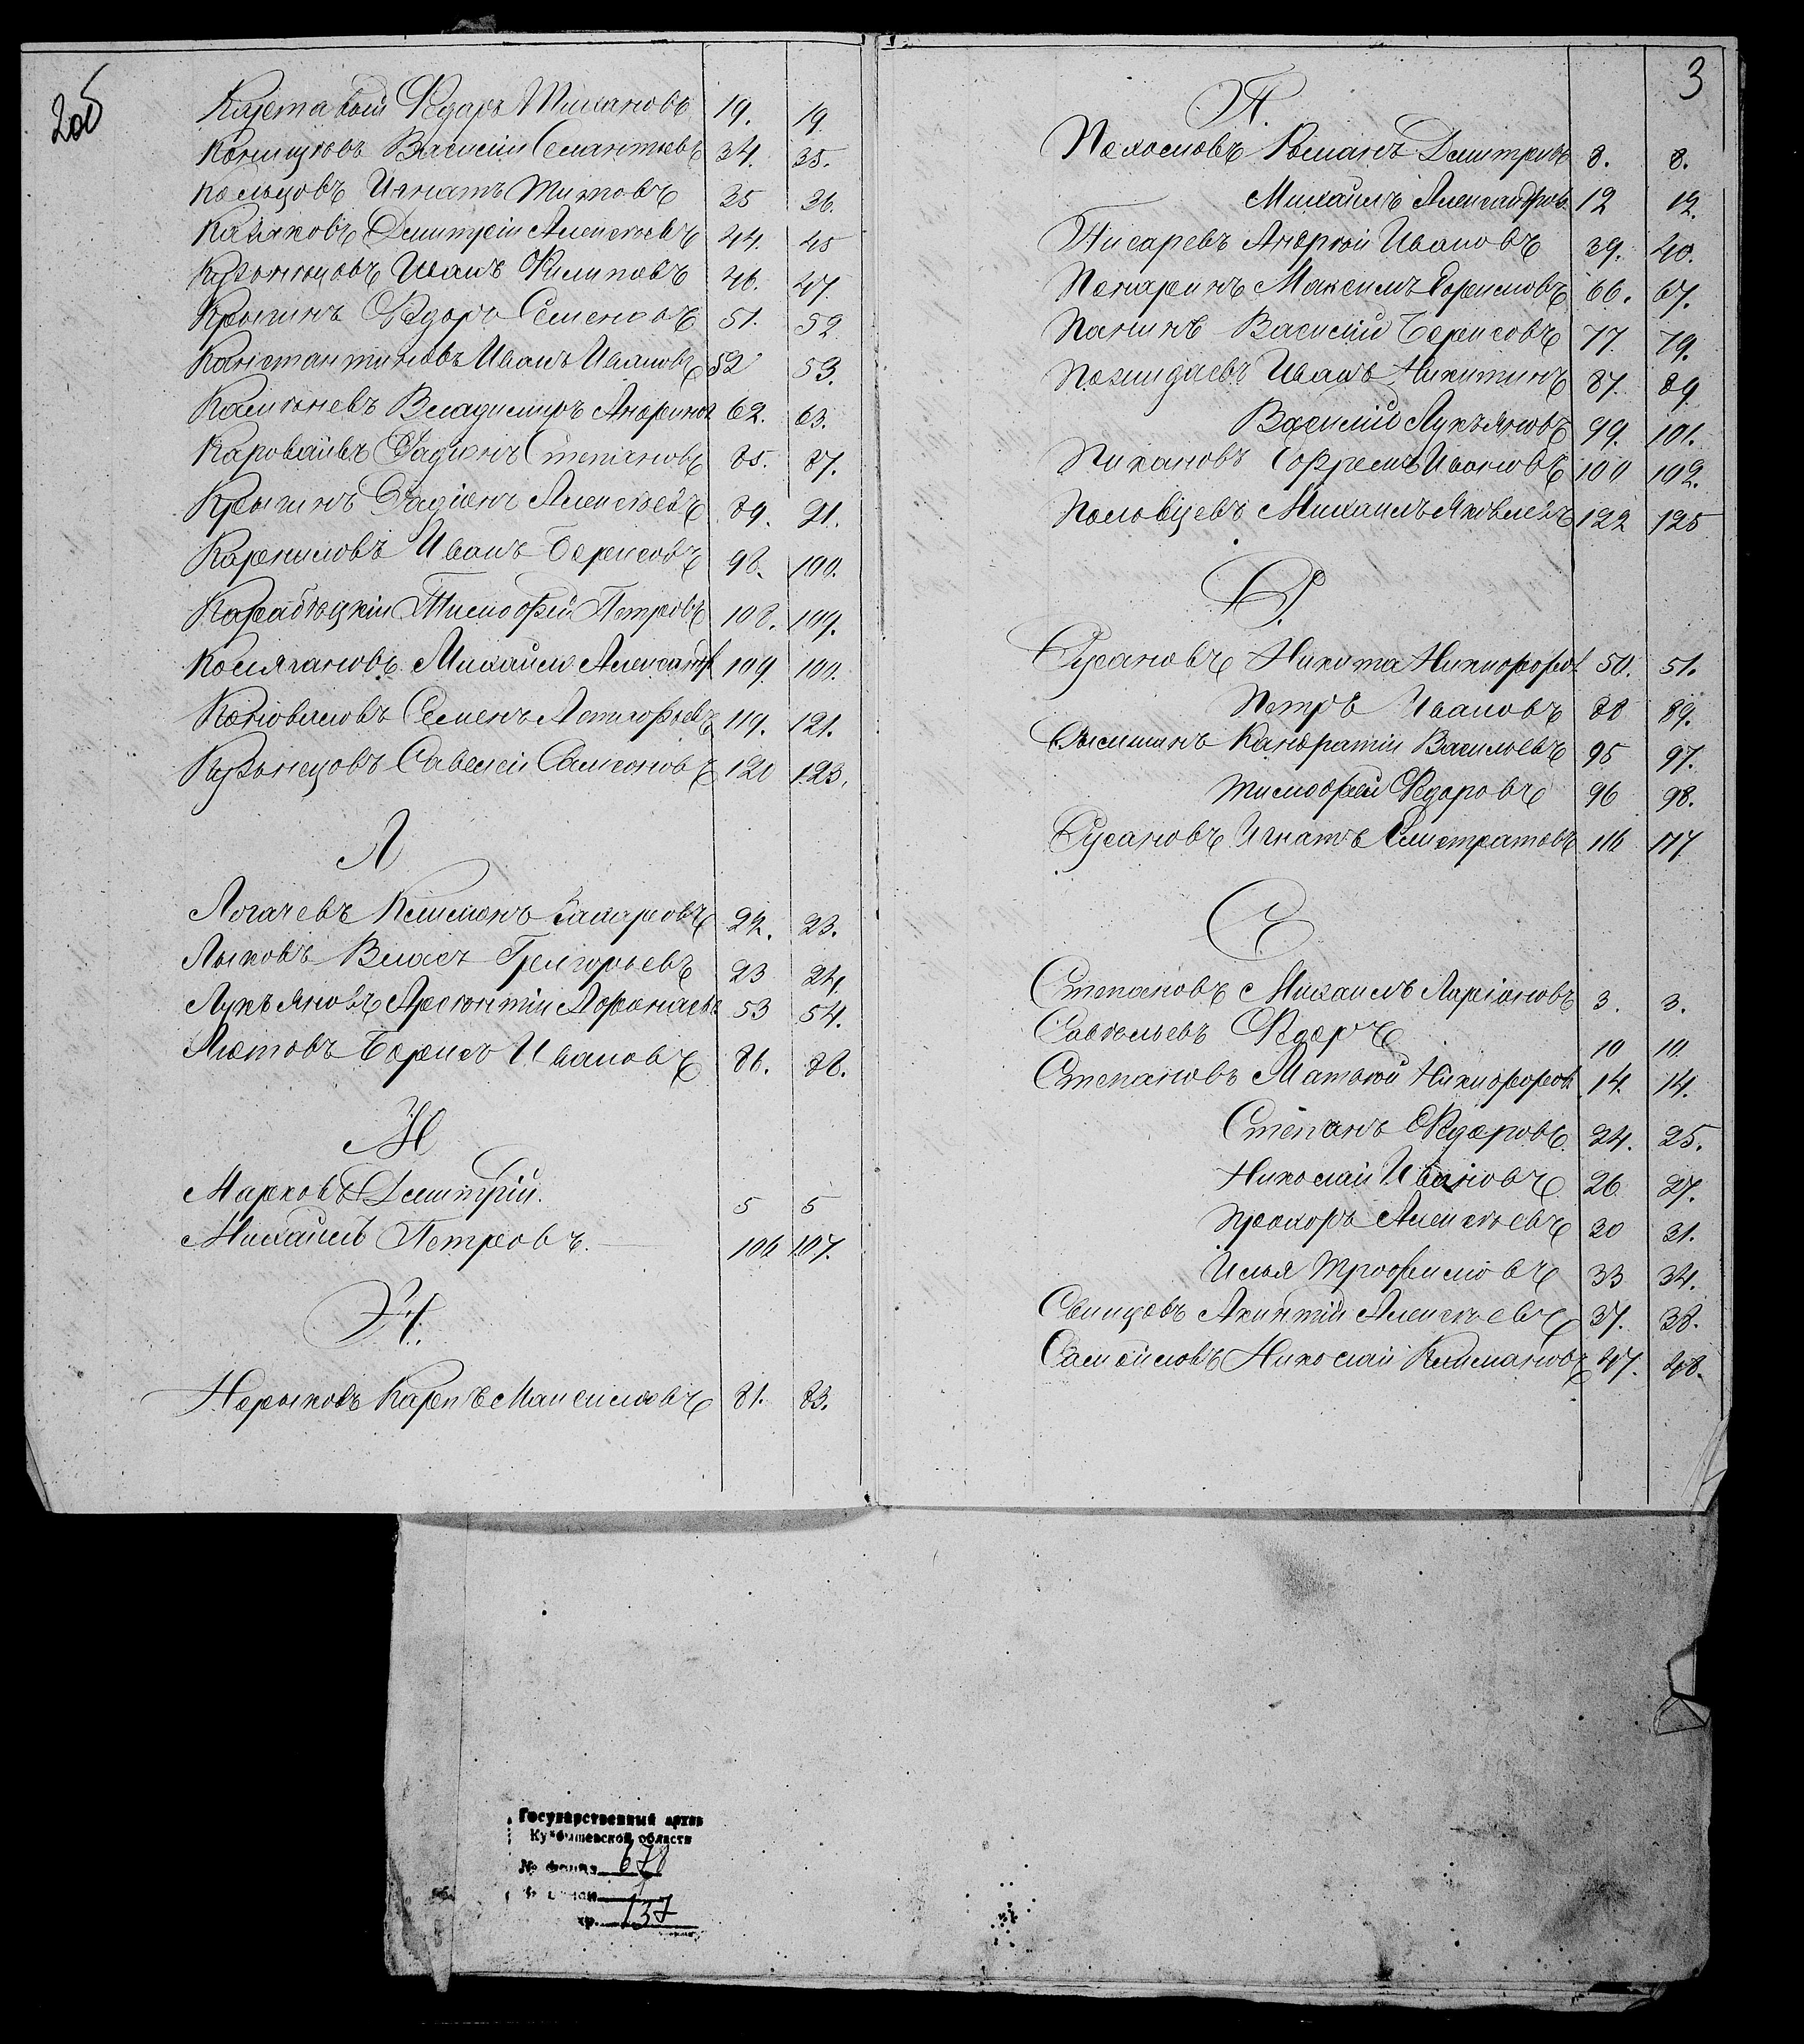 2об
Федоръ Тихановъ 19. 19.
Василий 34. 35.
Кольцовъ Игнатъ Титовъ 35 36.
Казаковъ Дмитрій Алексѣевъ 44. 45
Кузнецовъ Иванъ Филиповъ 46. 47.
Крыгинъ Федоръ Семеновъ 51. 52
Канстантиновъ Иванъ Ивановъ 52 53.
Владимиръ 62. 63.
Радионъ Степановъ 85. 87.
Крыгинъ Радіонъ Алексѣевъ 89. 91.
Иванъ Борисовъ 98. 100.
Тимофей Петровъ 108. 109.
Михайло Александр 109 100.
Коноваловъ Семенъ 119. 121.
Кузнецовъ Савелей Самсоновъ 120 123.
Л
Логачевъ Климонъ Захаровъ 22. 23.
Лыковъ Власъ Григорьевъ 23 24.
Лукьяновъ 53 54.
Лютовъ Борисъ Ивановъ 86. 88.
М
Марковъ Дмитрій. 5 5
Михаилъ Петровъ. 106 107.
Н.
Норыковъ Карпъ Максимовъ 81. 83.
3
П.
Романъ Дмитріевъ 8. 8.
Михаилъ Александров 12 12.
Писаревъ Андрей Ивановъ 39. 40.
Понаринъ Максимъ 66. 67.
Панинъ Василий Борисовъ 77. 79.
Пожидаевъ Иванъ Никитинъ 87. 89
Василій Лукьяновъ 99. 101.
Пихановъ Ивановъ 100 102.
Половцевъ Михаилъ Яковлевъ 122 125
Р.
Русановъ Никита Никифоров 50. 51.
Петръ Ивановъ 88 89.
Кандратій Васильевъ 95 97.
Тимофей Федоровъ 96 98.
Русановъ Игнатъ 116 117
С
Степановъ Михаилъ Ларіоновъ 3. 3.
Савельевъ Федоръ 10 10.
Степановъ Матвей Никифоров 14. 14.
Степанъ Федоровъ. 24. 25.
Николай Ивановъ 26 27.
Прохоръ Алексѣевъ 30 31.
Илья Трофимовъ 33 34.
Свинцовъ Акинтій Алексѣевъ 37. 38.
Самойловъ Николай Климановъ 47. 48.
Государственный архив
Куйбышевской области
№ фонда 678
137